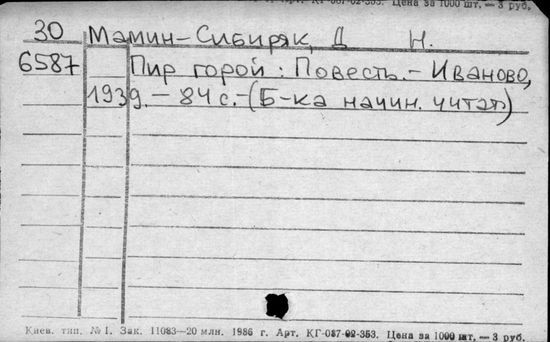 Арт. КГ-087-02-353. Цена за 1000 шт. — 3 руб.
30 Мамин-Сибиряк, Д Н.
6587 Пир горой: Повесть.- Иваново,
1939. — 84 с. - (Б-ка начин. читат)
Киев. тип. №1. Зак. 11083—20 млн. 1986 г. Арт. КГ-087-02-353. Цена за 1000 шт. — 3 руб.